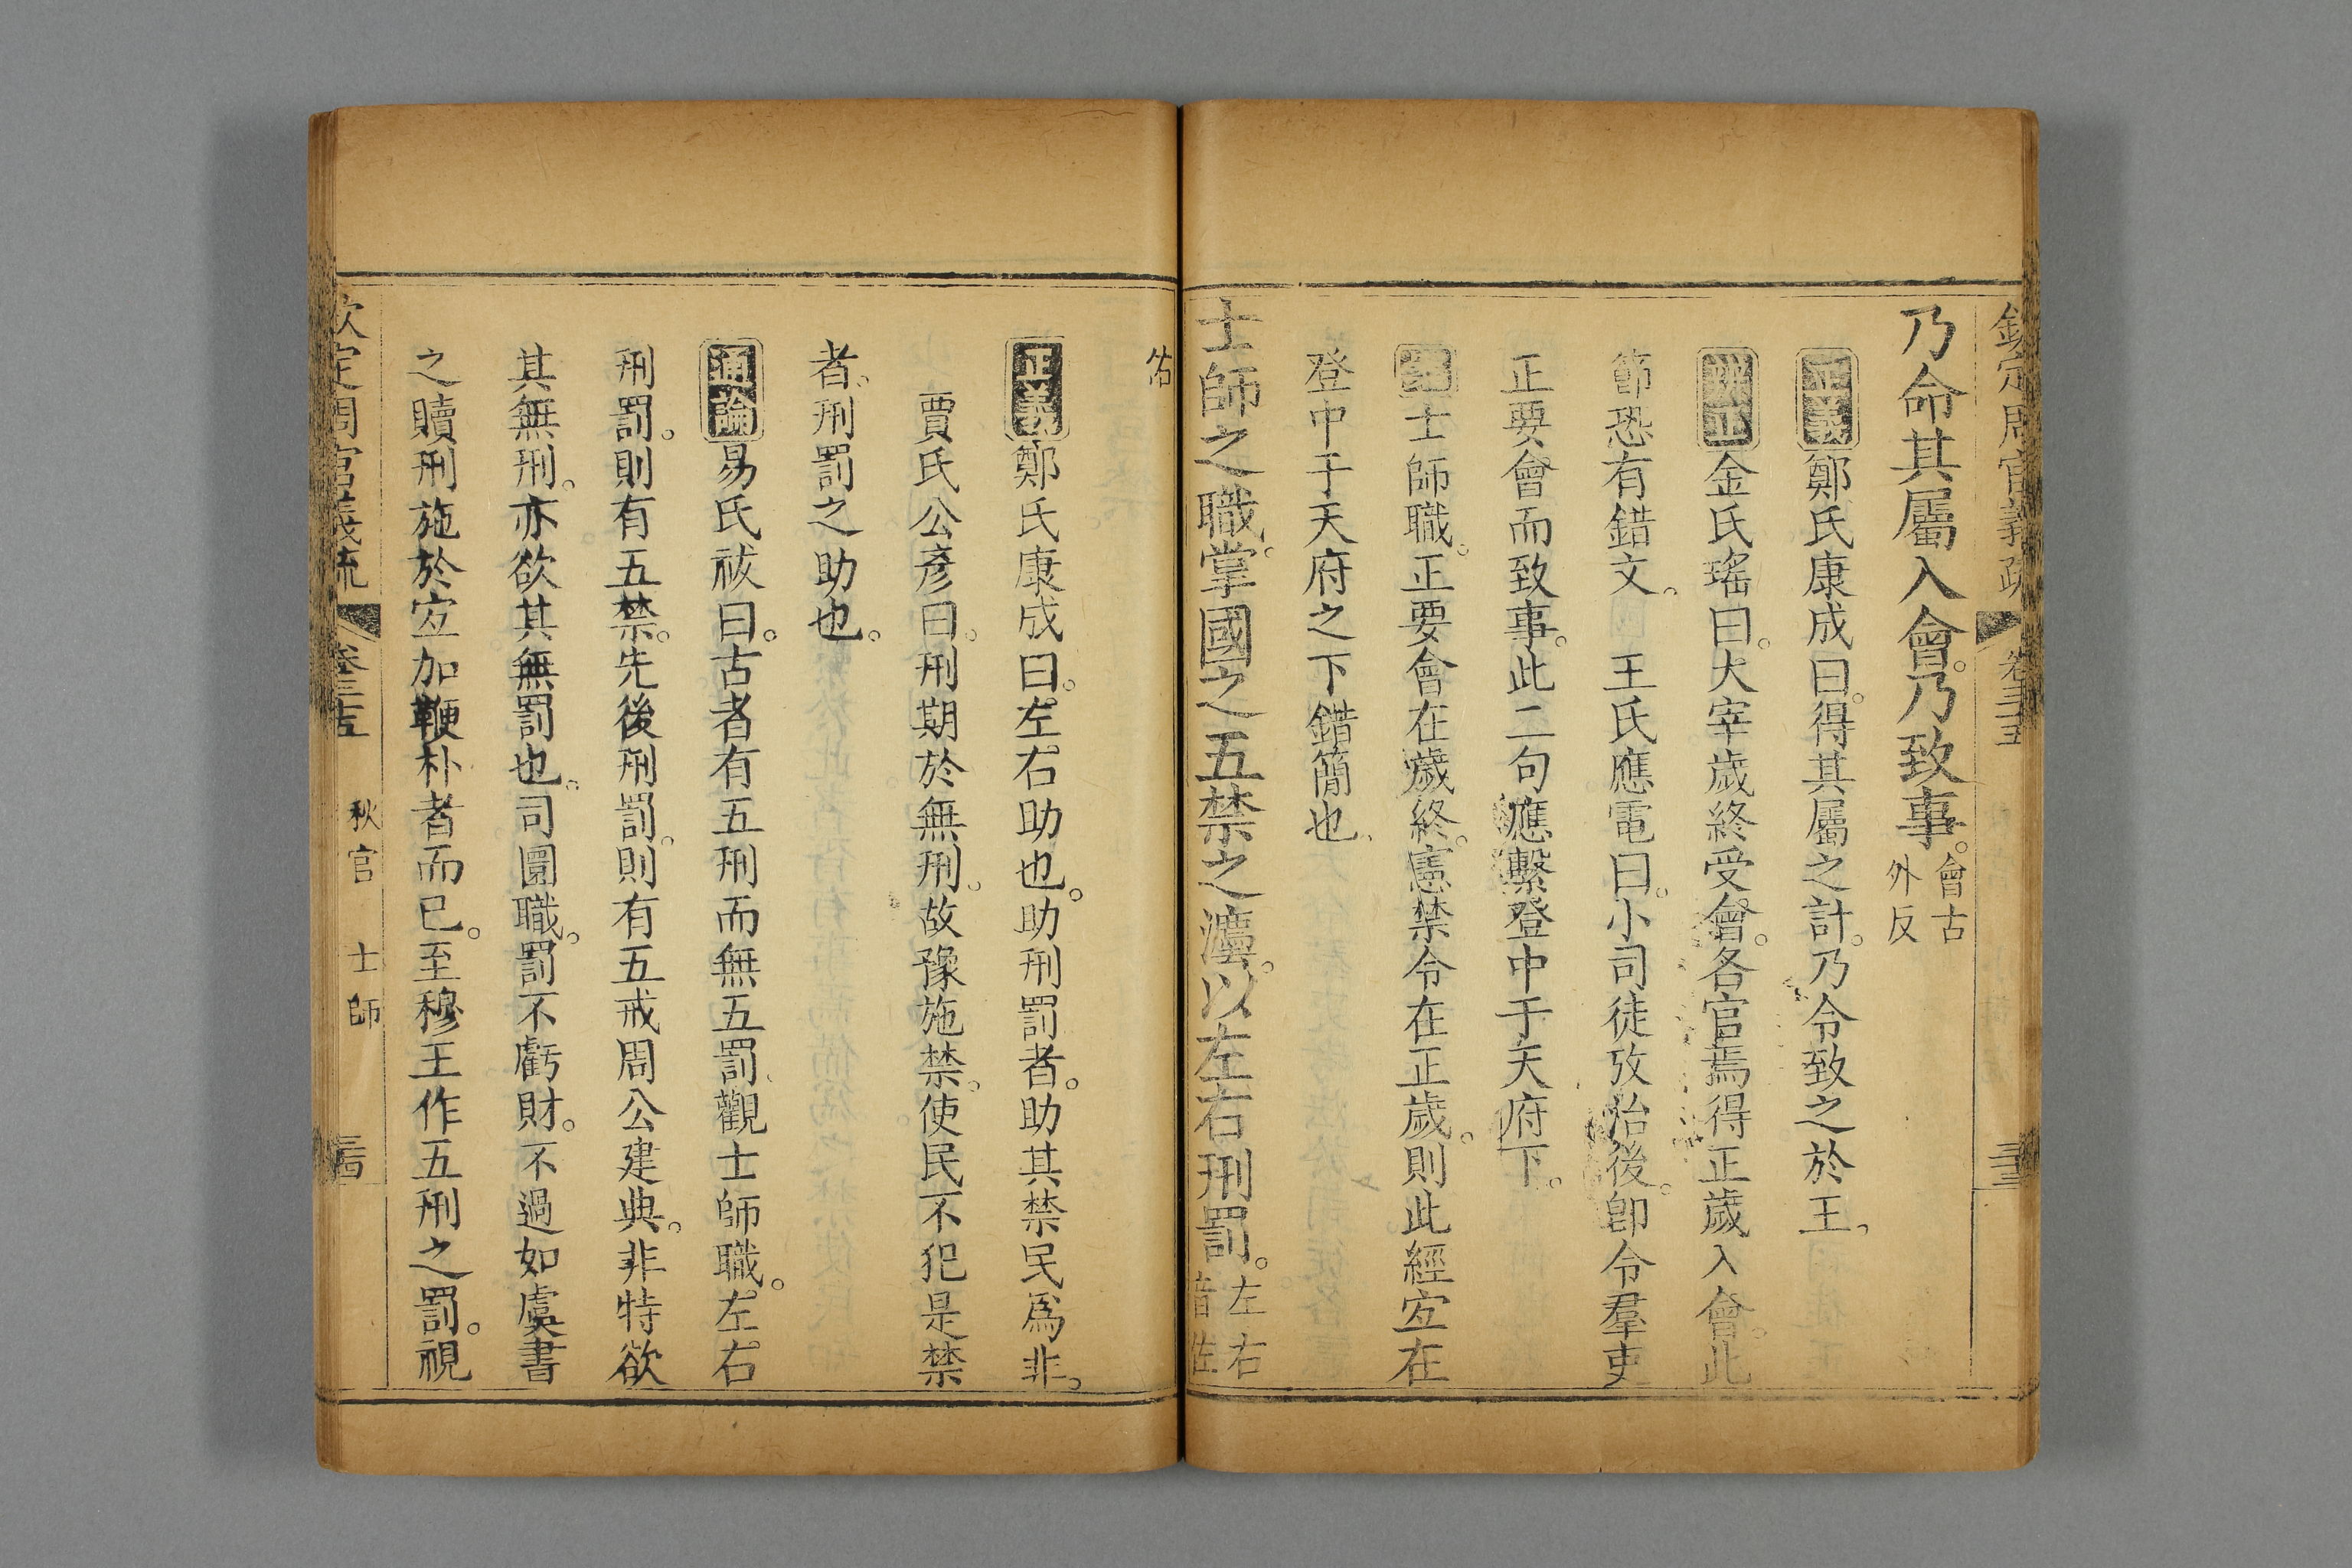 欽定周官義疏 卷三十五 三十三
乃命其屬入會。乃致事。會古外反
正義鄭氏康成曰。得其屬之計。乃令致之於王。
辨正金氏瑤曰。大宰歲終受會。各官焉得正歲入會。此
節恐有錯文。 王氏應電曰。小司徒攷治後。卽令羣吏
正要會而致事。此二句應繫登中于天府下。
案士師職。正要會在歲終。憲禁令在正歲。則此經宐在
登中于天府之下錯簡也。
士師之職。掌國之五禁之灋。以左右刑罰。左右音佐
佑
正義鄭氏康成曰。左右助也。助刑罰者。助其禁民爲非。
賈氏公彥曰。刑期於無刑。故豫施禁。使民不犯是禁
者。刑罰之助也。
通論易氏祓曰。古者有五刑而無五罰。觀士師職。左右
刑罰。則有五禁。先後刑罰。則有五戒周公建典。非特欲
其無刑。亦欲其無罰也。司圜職。罰不虧財。不過如虞書
之贖刑施於宐加鞭朴者而已。至穆王作五刑之罰。視
欽定周官義疏 卷三十五 秋官 士師 三十四